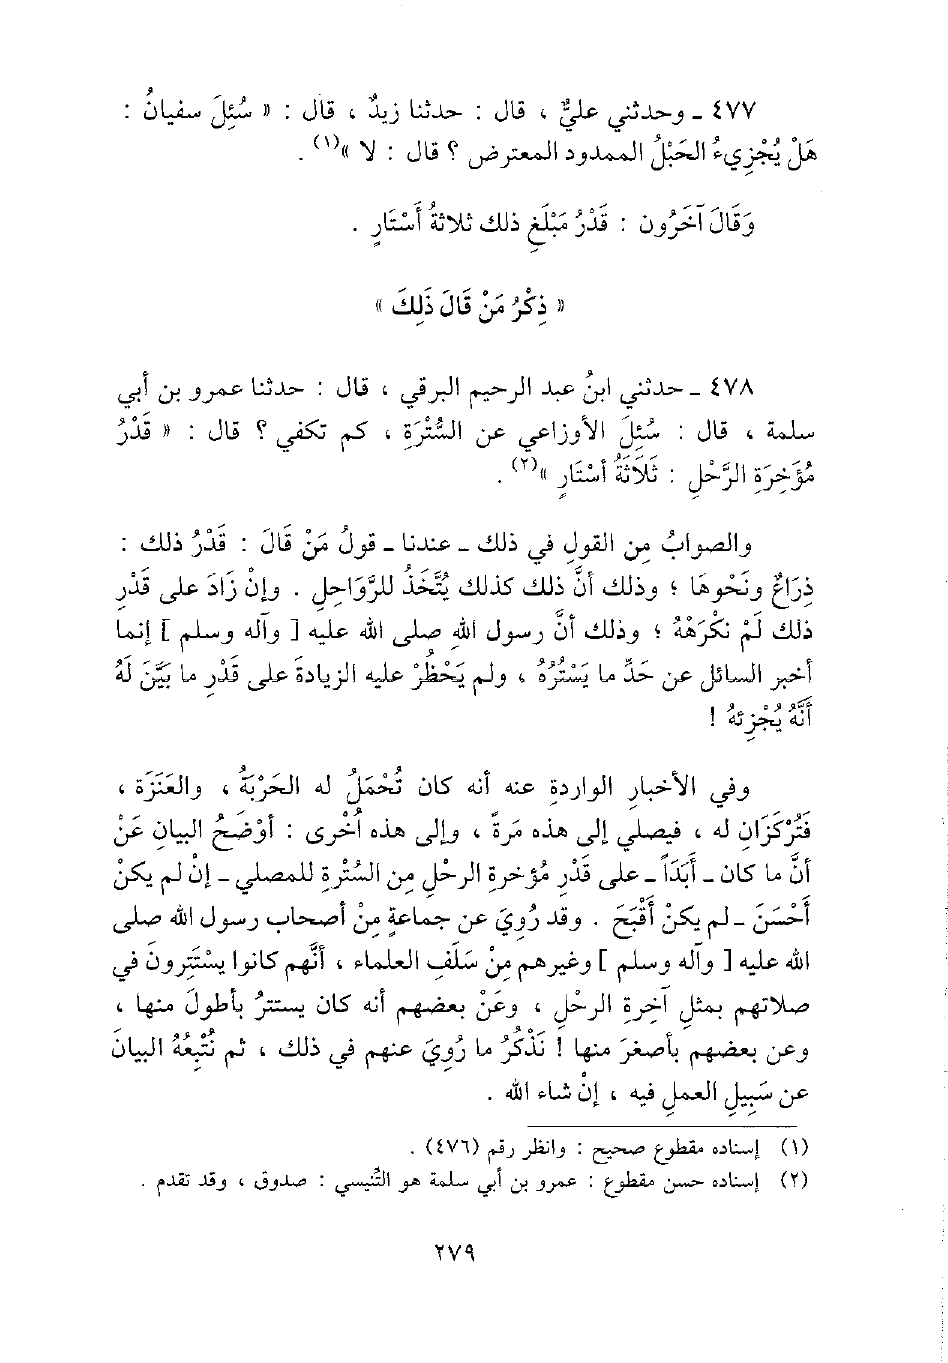 ٤٧٧ ـ وحدثني عليٌّ ، قال : حدثنا زيدٌ ، قال : « سُئِلَ سفيانُ :
هَلْ يُجْزِيءُ الحَبْلُ الممدود المعترض ؟ قال : لا »(١) .
وَقَالَ آخَرُون : قَدْرُ مَبْلَغِ ذلك ثلاثةُ أَسْتَارٍ .
« ذِكْرُ مَنْ قَالَ ذَلِكَ »
٤٧٨ ـ حدثني ابنُ عبد الرحيم البرقي ، قال : حدثنا عمرو بن أبي
سلمة ، قال : سُئِلَ الأوزاعي عن السُّتْرَةِ ، كم تكفي ؟ قال : « قَدْرُ
مُؤَخِرَةِ الرَّحْلِ : ثَلَاثَةُ أسْتَارٍ »(٢) .
والصوابُ مِن القولِ في ذلك ـ عندنا ـ قولُ مَنْ قَالَ : قَدْرُ ذلك :
ذِرَاعٌ ونَحْوهَا ؛ وذلك أنَّ ذلك كذلك يُتَّخَذُ للرَّوَاحِلِ . وإنْ زَادَ على قَدْرِ
ذلك لَمْ نكْرَهْهُ ؛ وذلك أنَّ رسول اللهِ صلى الله عليه [ وآله وسلم ] إنما
أخبر السائل عن حَدِّ ما يَسْتُرُهُ ، ولم يَحْظُرْ عليه الزيادةَ على قَدْرِ ما بَيَّنَ لَهُ
أنَّهُ يُجْزِئهُ !
وفي الأخبارِ الواردةِ عنه أنه كان تُحْمَلُ له الحَرْبَةُ ، والعَنَزَة ،
فَتُرْكَزَانِ له ، فيصلي إلى هذه مَرةً ، وإلى هذه أُخْرى : أوْضَحُ البيانِ عَنْ
أنَّ ما كان ـ أَبَدَاً ـ على قَدْرِ مُؤخرةِ الرحْلِ مِن السُّتْرةِ للمصلي ـ إنْ لم يكنْ
أَحْسَنَ ـ لم يكنْ أَقْبَحَ . وقد رُوِيَ عن جماعةٍ مِنْ أصحاب رسول الله صلى
الله عليه [ وآله وسلم ] وغيرهم مِنْ سَلَفِ العلماء ، أنَّهم كانوا يسْتَتِرونَ في
صلاتهم بمثلِ آخِرةِ الرحْلِ ، وعَنْ بعضهم أنه كان يستترُ بأطولَ منها ،
وعن بعضهم بأصغرَ منها ! نَذْكُرُ ما رُوِيَ عنهم في ذلك ، ثم نُتْبِعُهُ البيانَ
عن سَبِيلِ العملِ فيه ، إنْ شاء الله .
(١) إسناده مقطوع صحيح : وانظر رقم (٤٧٦) .
(٢) إسناده حسن مقطوع : عمرو بن أبي سلمة هو التِّنيسي : صدوق ، وقد تقدم .
٢٧٩